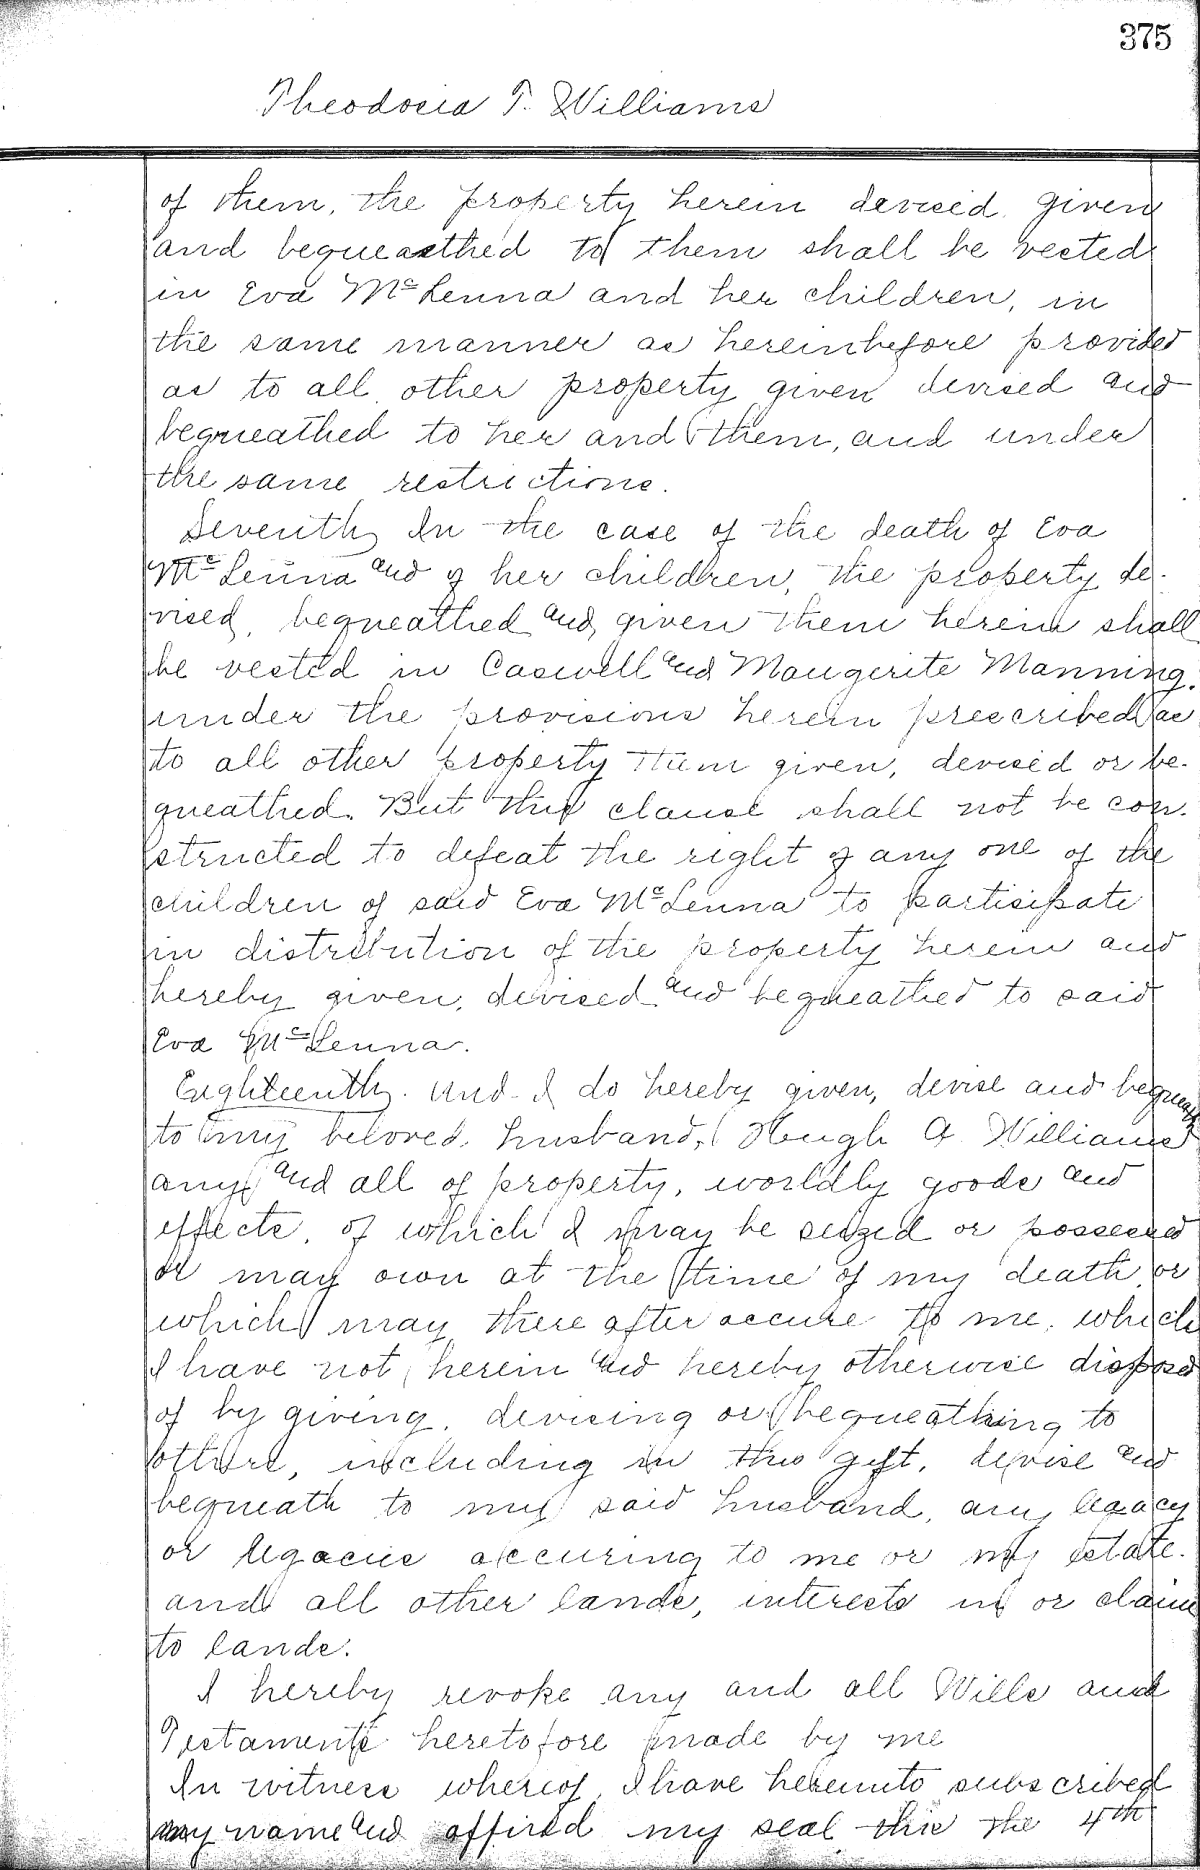 375
Theodosia T. Williams
of them, the property herein devised, given
and bequeathed to them shall be vested
in Eva McLenna and her children, in
the same manner as hereinbefore provided
as to all other property given devised and
bequeathed to her and them, and under
the same restrictions.
Seventh, In the case of the death of Eva
McLenna and of her children, the property de-
vised, bequeathed and given them herein shall
be vested in Caswell and Maugerite Manning.
under the provisions herein prescribed as
to all other property them given, devised or be-
queathed. But this clause shall not be con-
structed to defeat the right of any one of the
children of said Eva McLenna to partisipate
in distribution of the property herein and
hereby given, devised and bequeathed to said
Eva McLenna.
Eighteenth. And I do hereby given, devise and bequeath
to my beloved, husband, Hugh A. Williams
any and all of property, worldly goods and
effects, of which I may be seized or possessed
or may own at the time of my death, or
which may there after accure to me, which
I have not, herein and hereby otherwise disposed
of by giving, devising or bequeathing to
others, including in this gift, devise and
bequeath to my said husband, any legacy
or legacies accuring to me or my estate.
and all other lands, interests in or claim
to lands.
I hereby revoke any and all Wills and
Testaments heretofore made by me
In witness whereof, I have hereunto subscribed
my name and affixed my seal this the 4th